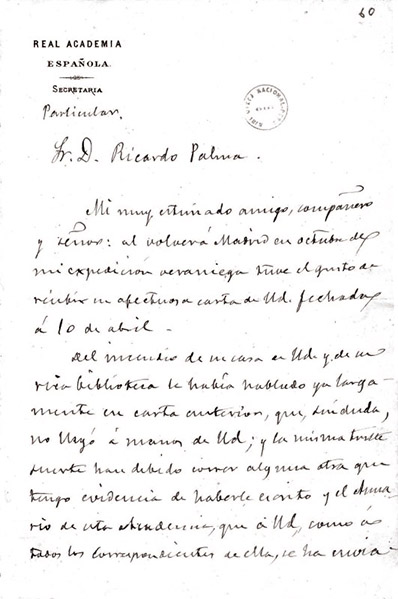 60
REAL ACADEMIA
ESPAÑOLA
SECRETARIA
Particular.
BIBLIOTECA NACIONAL
Sr. D. Ricardo Palma.
Mi muy estimado amigo, compañero
y Señor: al volver á Madrid en octubre de
mi expedición veraniega tuve el gusto de
recibir su afectuosa carta de Ud. fechada
á 10 de abril.
Del incendio de su casa de Ud. y de su
rica biblioteca le había hablado ya larga-
mente en carta anterior, que, sin duda,
no llegó á manos de Ud; y la misma triste
suerte han debido correr alguna otra que
tengo evidencia de haberle escrito y el Anua-
rio de esta Academia, que á Ud, como á
todos los correspondientes de ella, se ha envia-